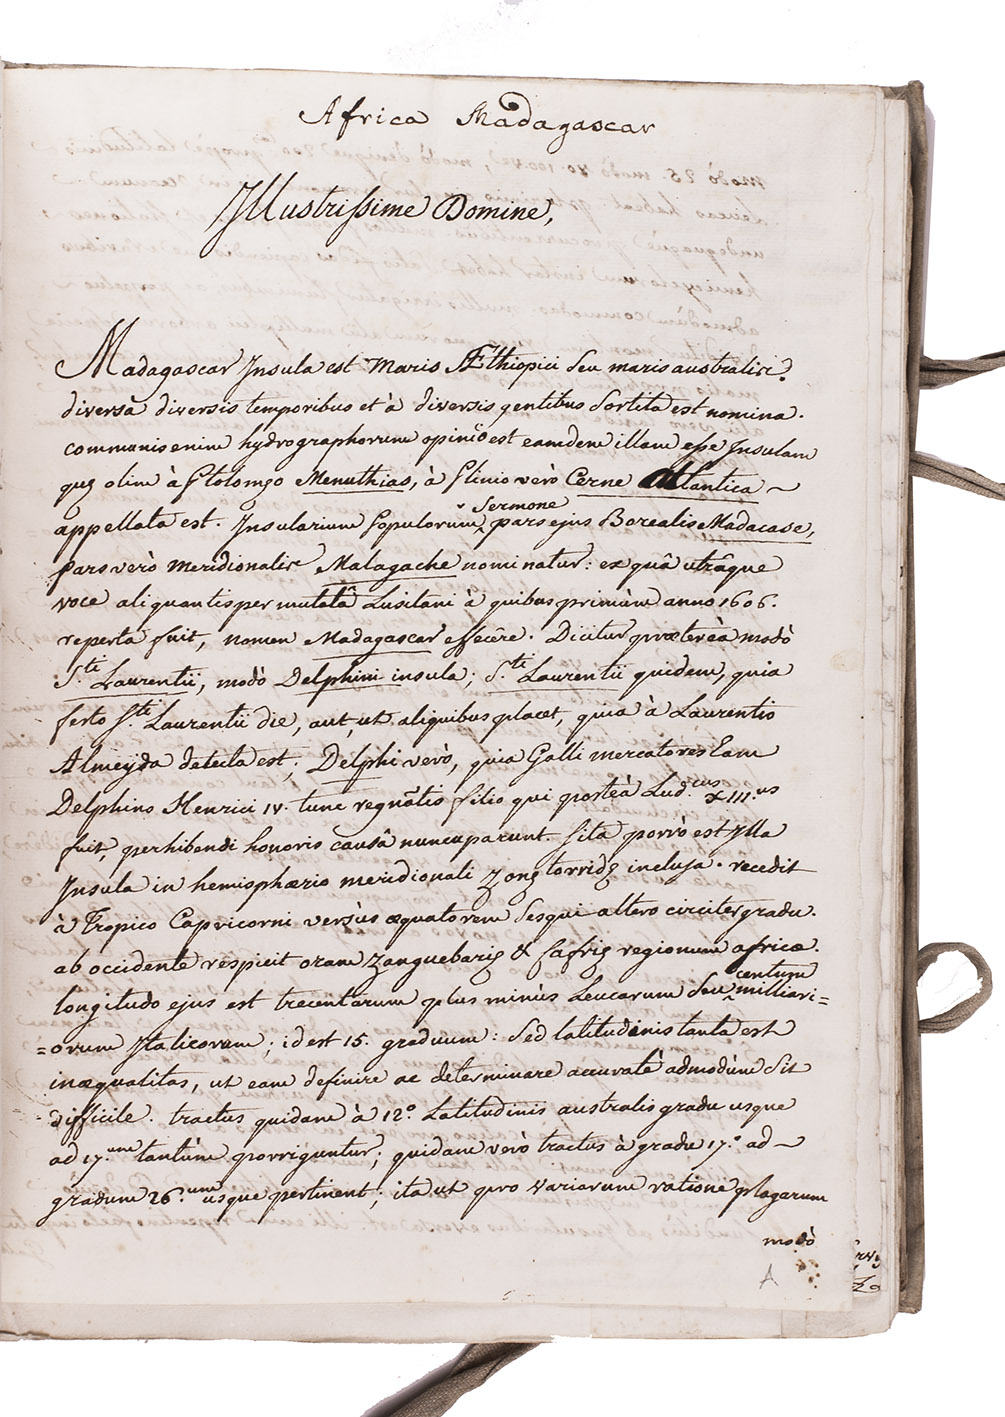 Africa Madagascar
Illustrissime Domine,
Madagascar Insula est Maris Æthiopici seu maris australis.
diversa diversis temporibus et à diversis gentibus sortita est nomina.
communis enim hydrographorum opinio est eamdem illam esse Insulam
quę olim à Ptolomęo Menuthias, à Plinio verò Cerne Atlantica ~
appellata est. Insularium populorum sermone pars ejus Borealis Madacase,
pars verò meridionalis Malagache nominatur: ex quâ utrâque
voce aliquantisper mutatâ Lusitani à quibus primùm anno 1606.
reperta fuit, nomen Madagascar effecêre. Dicitur prætereà modò
S.ti Laurentii, modò Delphini insula; S.ti Laurentii quidem, quia
festo S.ti Laurentii die, aut, ut aliquibus placet, quia à Laurentio
Almeÿda detecta est; Delphi verò, quia Galli mercatores Eam
Delphino Henrici IV. tunc regnãtis filio qui posteà Lud.cus XIII.us
fuit, perhibendi honoris causâ nuncuparunt. Sita porrò est Illa
Insula in hemisphærio meridionali Zonę torridę inclusa. recedit
à Tropico Capricorni versùs æquatorem sesqui altero circiter gradu.
ab occidente respicit oram Zanguebarię & Cafrię regionum africæ.
longitudo ejus est trecentarum plus minùs Leucarum seu centum milliari=
=orum Italicorum; id est 15. graduum: Sed latitudinis tanta est
inæqualitas, ut eam definire ac determinare accuratè admodùm sit
difficile. tractus quidam à 12.° Latitudinis australis gradu usque
ad 17.um tantùm porriguntur; quidam verò tractus à gradu 17.° ad ~
gradum 26.um usque pertinent; ita ut pro variarum ratione plagarum
modò
A